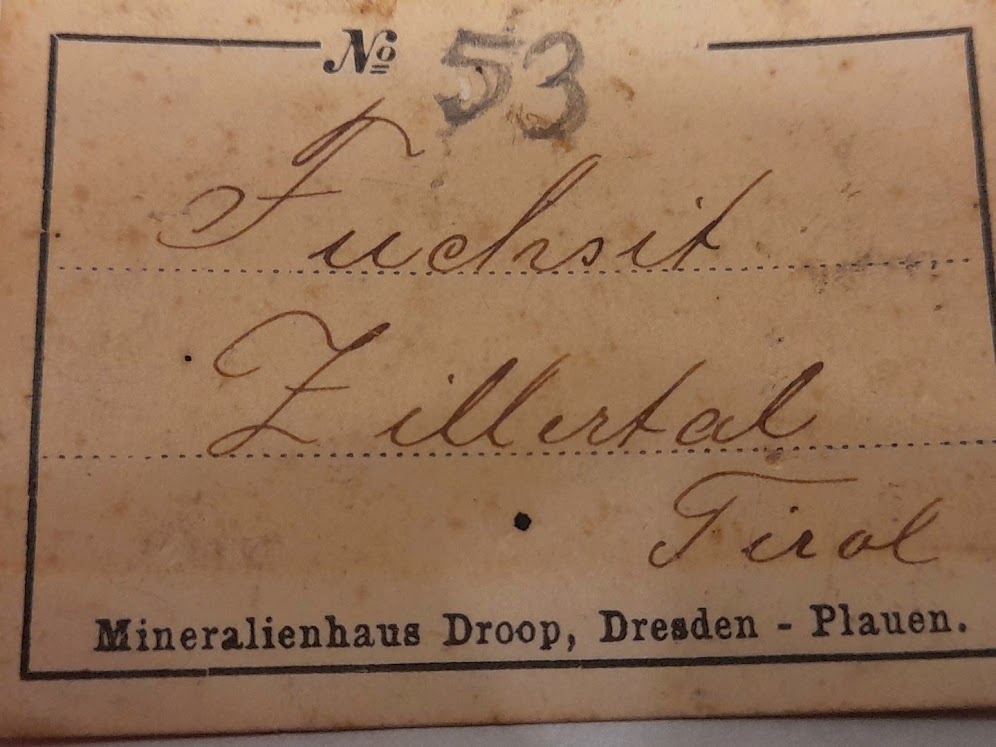 № 53
Fuchsit
Zillertal
Tirol
Mineralienhaus Droop, Dresden - Plauen.